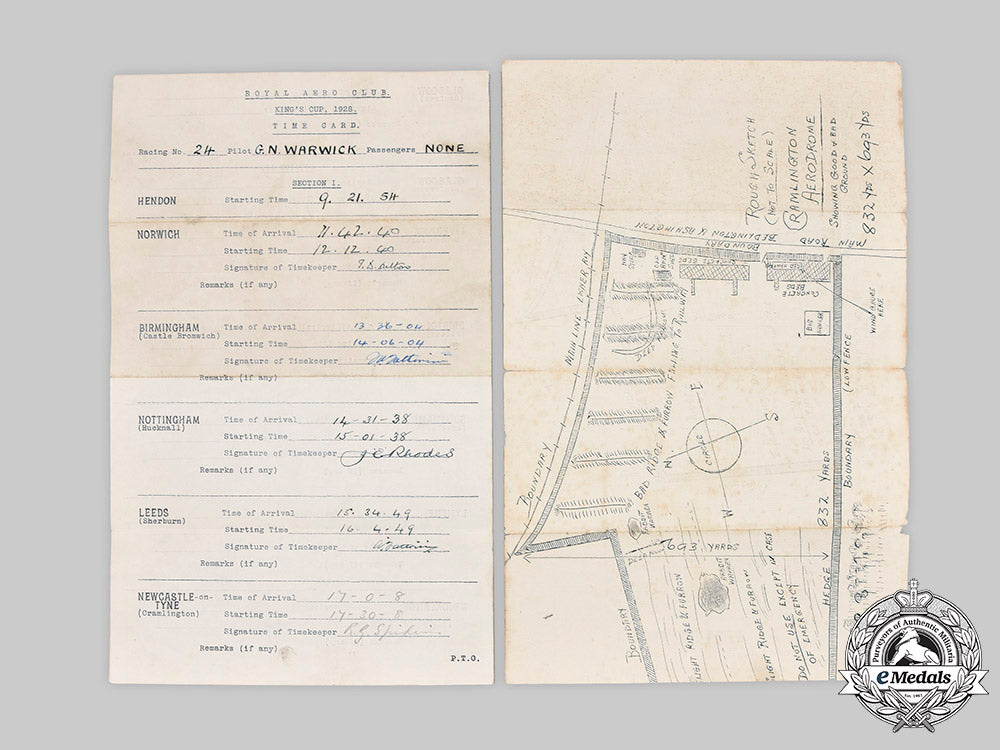 ROYAL AERO CLUB.
KING'S CUP, 1928.
TIME CARD.
Racing No. 24 Pilot G.N. WARWICK Passengers NONE
SECTION I.
HENDON Starting Time 9. 21. 54
NORWICH Time of Arrival 11.42.40
Starting Time 12.12.40
Signature of Timekeeper
Remarks (if any)
BIRMINGHAM Time of Arrival 13-36-04
(Castle Bromwich) Starting Time 14-06-04
Signature of Timekeeper
Remarks (if any)
NOTTINGHAM Time of Arrival 14-31-38
(Hucknall) Starting Time 15-01-38
Signature of Timekeeper J E Rhodes
Remarks (if any)
LEEDS Time of Arrival 15. 34. 49
(Sherburn) Starting Time 16. 4. 49
Signature of Timekeeper
Remarks (if any)
NEWCASTLE-on-TYNE Time of Arrival 17-0-8
(Cramlington) Starting Time 17-30-8
Signature of Timekeeper
Remarks (if any)
P.T.O.
ROUGH SKETCH
(NOT TO SCALE)
CRAMLINGTON
AERODROME
SHOWING GOOD & BAD
GROUND
832 YDS X 693 YDS
MAIN ROAD BEDLINGTON & ASHINGTON
BOUNDARY
MAIN LINE L.N.E.R. RLY
CONCRETE
BLDG
BOUNDARY
BAD RIDGE & FURROW FALLING TO RAILWAY
E
S
N
W
CIRCLE
(LOW FENCE
BOUNDARY
832 YARDS
HEDGE
693 YARDS
RABBIT
WARREN
BOUNDARY
LIGHT RIDGE & FURROW
LIGHT RIDGE & FURROW
DO NOT USE EXCEPT IN CASE
OF EMERGENCY
Purveyors of Authentic Militaria
eMedals